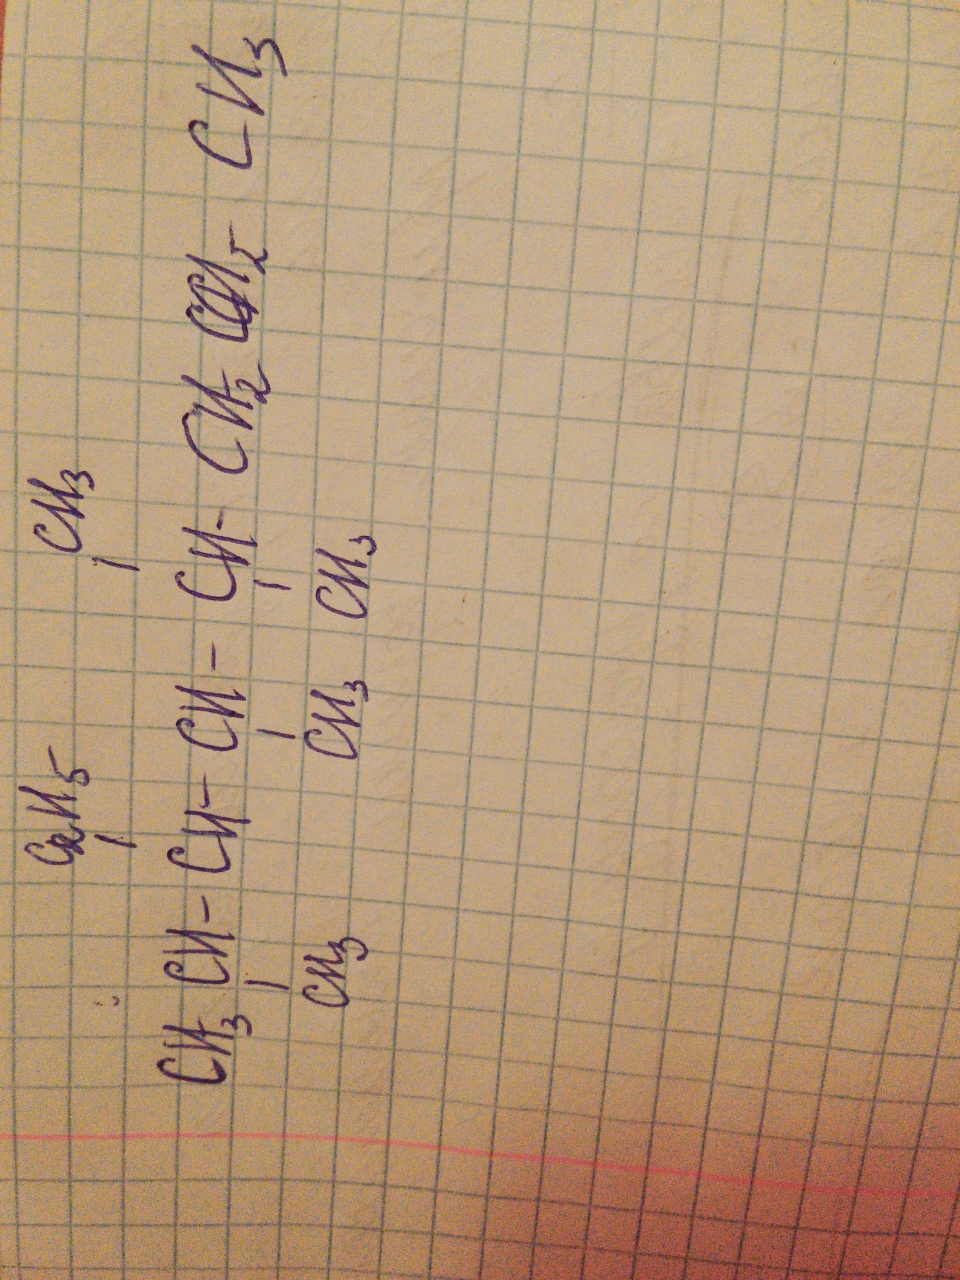 C2H5 CH3
CH3 CH- CH- CH- CH- CH2 CH2- CH3
CH3 CH3 CH3